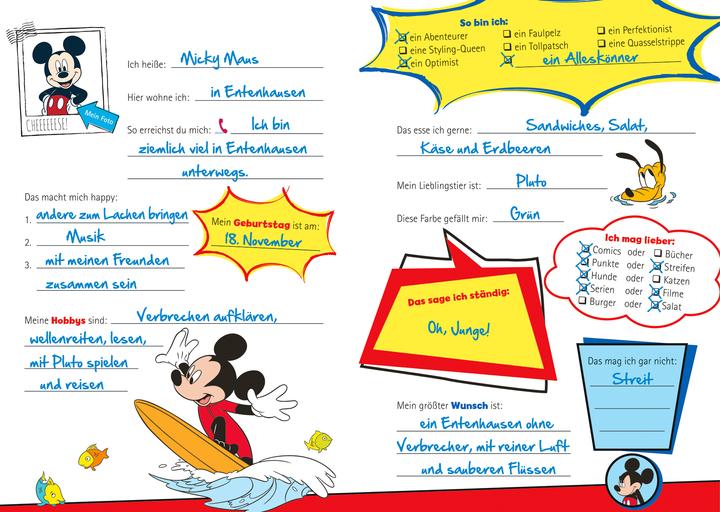 CHEEEEESE!
Mein Foto
Ich heiße: Micky Maus
Hier wohne ich: in Entenhausen
So erreichst du mich: Ich bin
ziemlich viel in Entenhausen
unterwegs.
Das macht mich happy:
1. andere zum Lachen bringen
2. Musik
3. mit meinen Freunden
zusammen sein
Mein Geburtstag ist am:
18. November
Meine Hobbys sind: Verbrechen aufklären,
wellenreiten, lesen,
mit Pluto spielen
und reisen
So bin ich:
ein Abenteurer ein Faulpelz ein Perfektionist
eine Styling-Queen ein Tollpatsch eine Quasselstrippe
ein Optimist ein Alleskönner
Das esse ich gerne: Sandwiches, Salat,
Käse und Erdbeeren
Mein Lieblingstier ist: Pluto
Diese Farbe gefällt mir: Grün
Ich mag lieber:
Comics oder Bücher
Punkte oder Streifen
Hunde oder Katzen
Serien oder Filme
Burger oder Salat
Das sage ich ständig:
Oh, Junge!
Das mag ich gar nicht:
Streit
Mein größter Wunsch ist:
ein Entenhausen ohne
Verbrecher, mit reiner Luft
und sauberen Flüssen